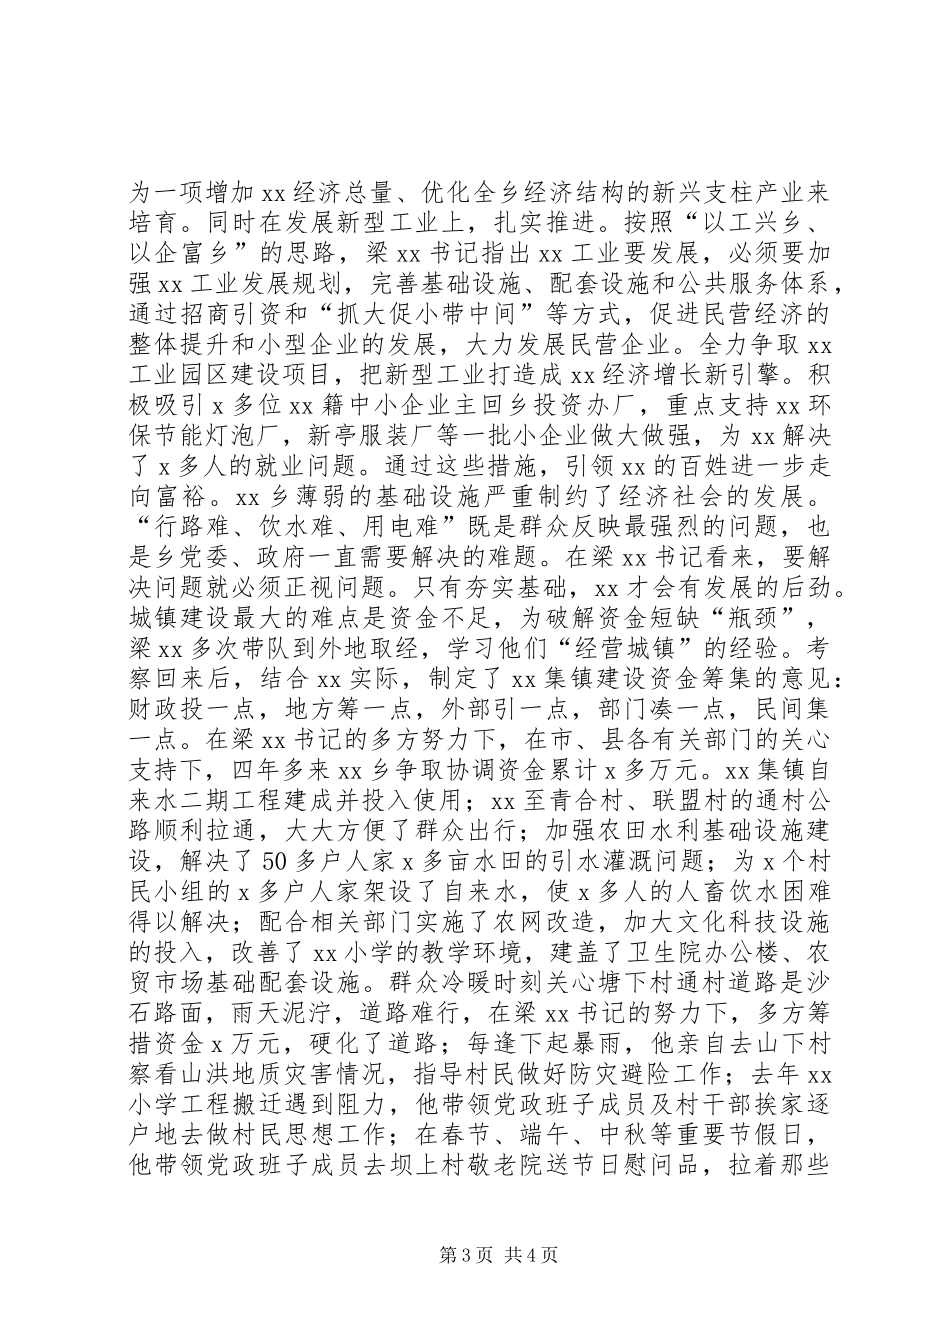 为一项增加 xx 经济总量、优化全乡经济结构的新兴支柱产业来
培育。同时在发展新型工业上，扎实推进。按照“以工兴乡、
以企富乡”的思路，梁 xx 书记指出 xx 工业要发展，必须要加
强 xx 工业发展规划，完善基础设施、配套设施和公共服务体系，
通过招商引资和“抓大促小带中间”等方式，促进民营经济的
整体提升和小型企业的发展，大力发展民营企业。全力争取 xx
工业园区建设项目，把新型工业打造成 xx 经济增长新引擎。积
极吸引 x 多位 xx 籍中小企业主回乡投资办厂，重点支持 xx 环
保节能灯泡厂，新亭服装厂等一批小企业做大做强，为 xx 解决
了 x 多人的就业问题。通过这些措施，引领 xx 的百姓进一步走
向富裕。xx 乡薄弱的基础设施严重制约了经济社会的发展。
“行路难、饮水难、用电难”既是群众反映最强烈的问题，也
是乡党委、政府一直需要解决的难题。在梁 xx 书记看来，要解
决问题就必须正视问题。只有夯实基础，xx 才会有发展的后劲。
城镇建设最大的难点是资金不足，为破解资金短缺“瓶颈”，
梁 xx 多次带队到外地取经，学习他们“经营城镇”的经验。考
察回来后，结合 xx 实际，制定了 xx 集镇建设资金筹集的意见：
财政投一点，地方筹一点，外部引一点，部门凑一点，民间集
一点。在梁 xx 书记的多方努力下，在市、县各有关部门的关心
支持下，四年多来 xx 乡争取协调资金累计 x 多万元。xx 集镇自
来水二期工程建成并投入使用；xx 至青合村、联盟村的通村公
路顺利拉通，大大方便了群众出行；加强农田水利基础设施建
设，解决了 50 多户人家 x 多亩水田的引水灌溉问题；为 x 个村
民小组的 x 多户人家架设了自来水，使 x 多人的人畜饮水困难
得以解决；配合相关部门实施了农网改造，加大文化科技设施
的投入，改善了 xx 小学的教学环境，建盖了卫生院办公楼、农
贸市场基础配套设施。群众冷暖时刻关心塘下村通村道路是沙
石路面，雨天泥泞，道路难行，在梁 xx 书记的努力下，多方筹
措资金 x 万元，硬化了道路；每逢下起暴雨，他亲自去山下村
察看山洪地质灾害情况，指导村民做好防灾避险工作；去年 xx
小学工程搬迁遇到阻力，他带领党政班子成员及村干部挨家逐
户地去做村民思想工作；在春节、端午、中秋等重要节假日，
他带领党政班子成员去坝上村敬老院送节日慰问品，拉着那些
第 3 页 共 4 页